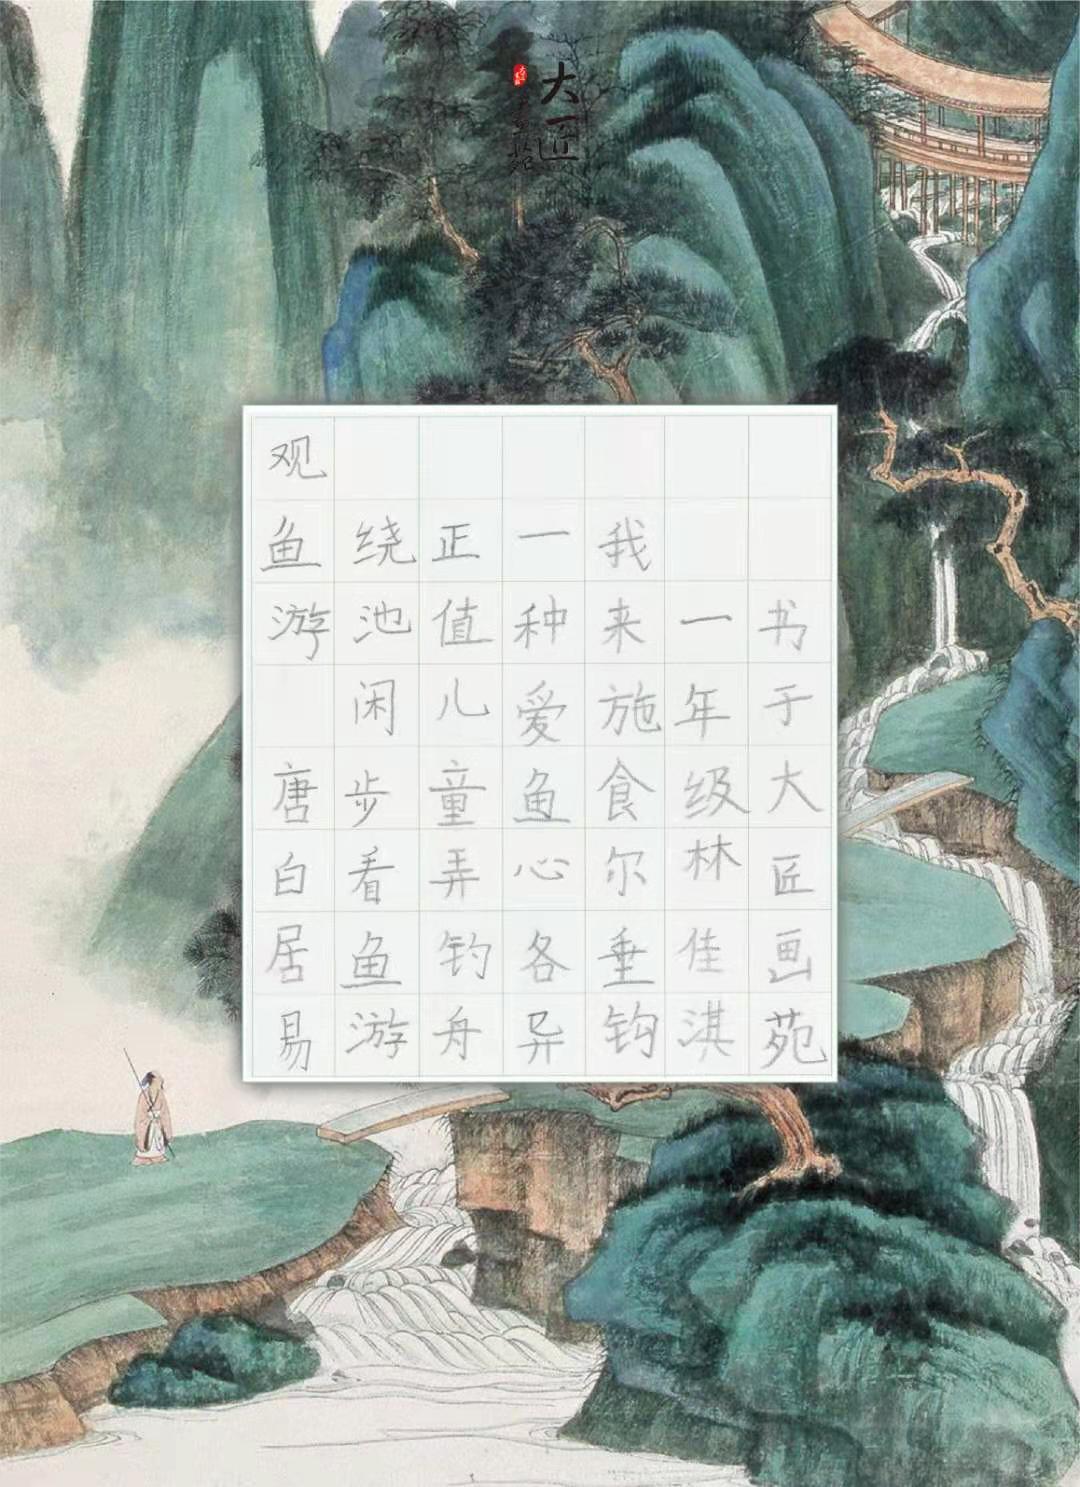 大匠
观鱼游 唐白居易
绕池闲步看鱼游
正值儿童弄钓舟
一种爱鱼心各异
我来施食尔垂钩
一年级林佳淇
书于大匠画苑